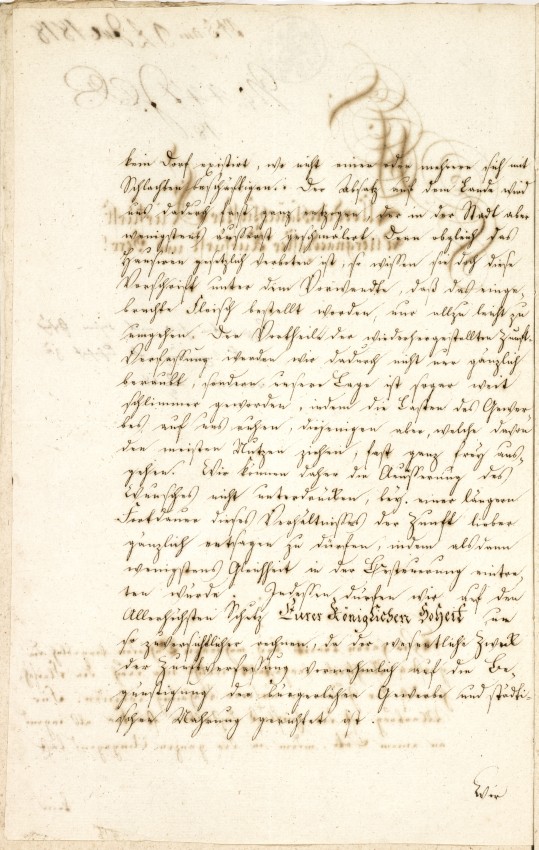 kein Dorf existirt, wo nicht einer oder mehrere sich mit
Schlachten beschäftigen. Der Absatz auf dem Lande wird
uns dadurch fast ganz entzogen, der in der Stadt aber
wenigstens äusserst geschmälert. Denn obgleich das
Hausiren gesetzlich verboten ist, so wissen sie doch diese
Vorschrift unter dem Vorwande, daß das einge-
brachte Fleisch bestellt worden, nur allzu leicht zu
umgehen. Der Vortheile der wiederhergestellten Zunft-
Verfassung werden wir dadurch nicht nur gänzlich
beraubt, sondern unsere Lage ist sogar weit
schlimmer geworden, indem die Lasten des Gewer-
bes auf uns ruhen, diejenigen aber, welche davon
den meisten Nutzen ziehen, fast ganz frey aus-
gehen. Wir können daher die Äußerung des
Wunsches nicht unterdrücken, bey einer längern
Fortdauer dieses Verhältnisses der Zunft lieber
gänzlich entsagen zu dürfen, indem alsdann
wenigstens Gleichheit in der Besteuerung eintre-
ten würde. Indessen dürfen wir auf den
Allerhöchsten Schutz Eurer Königlichen Hoheit um
so zuversichtlicher rechnen, da der wesentliche Zweck
der Zunftverfassung vornehmlich auf die Be-
günstigung der bürgerlichen Gewerbe und städti-
schen Nahrung gerichtet ist.
Wir